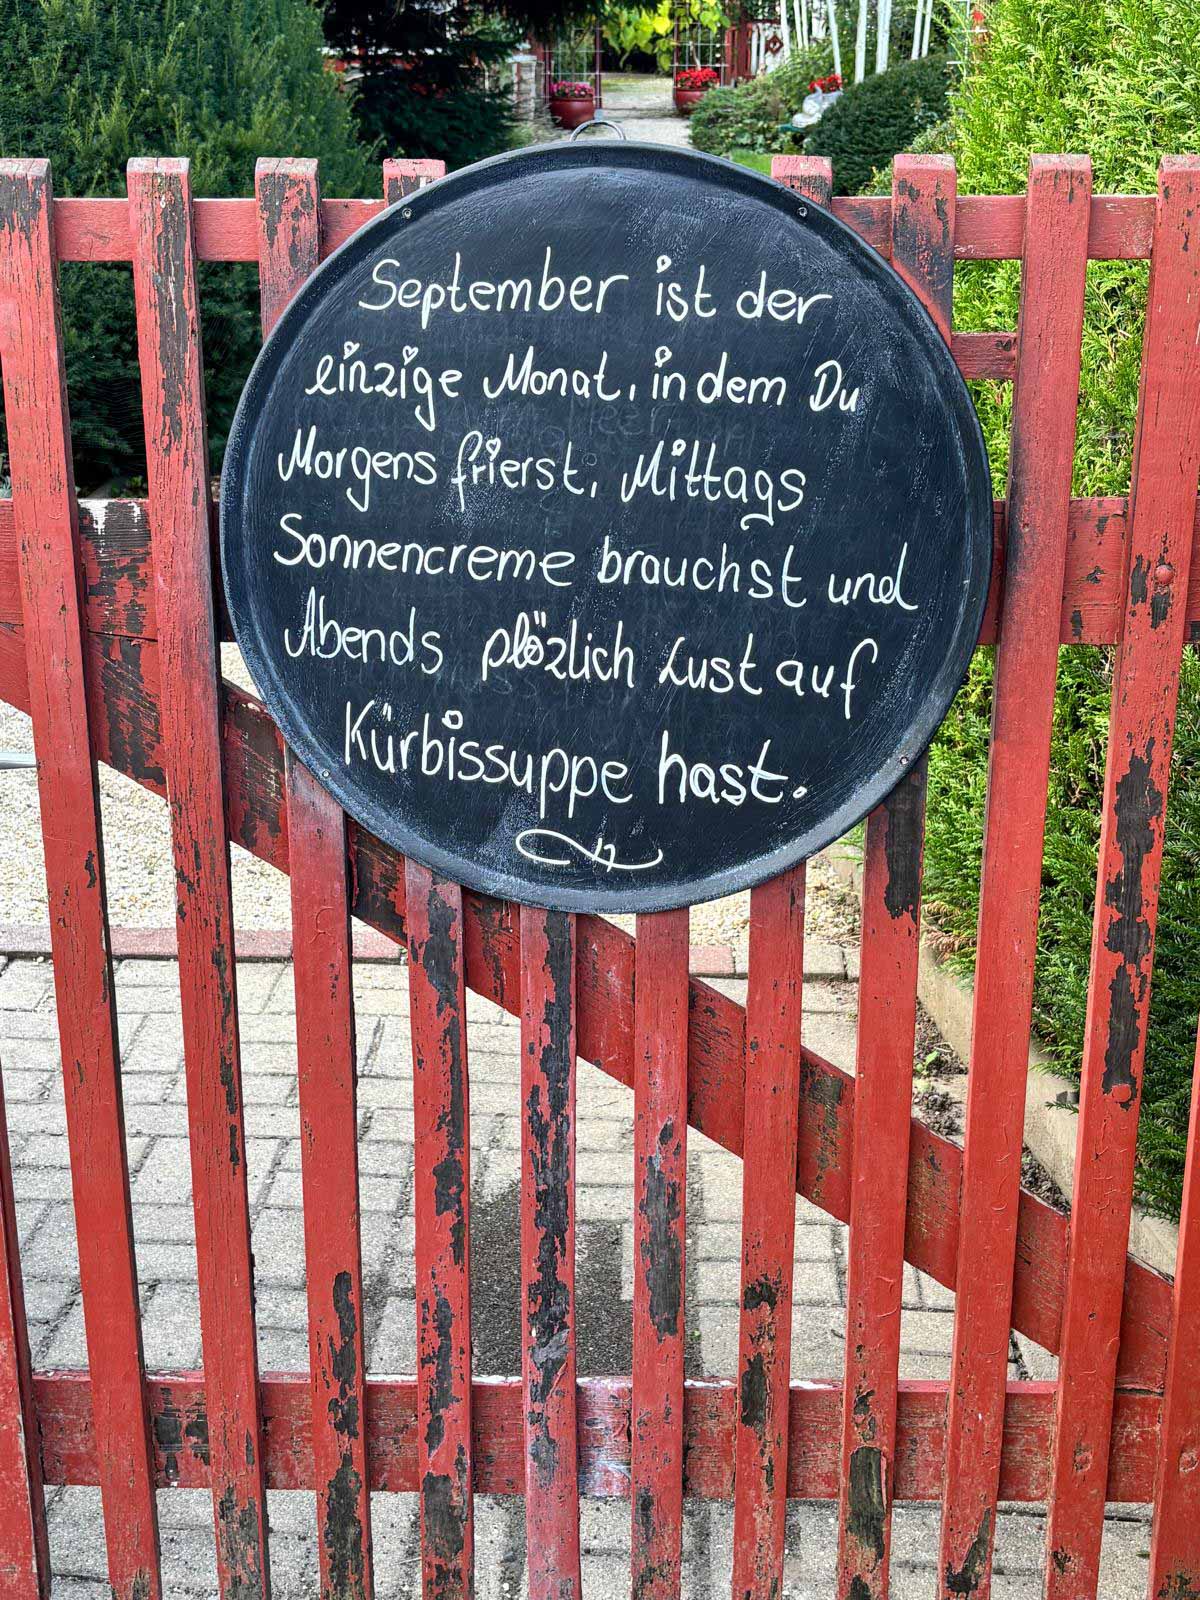 September ist der
einzige Monat, in dem Du
Morgens frierst, Mittags
Sonnencreme brauchst und
Abends plözlich Lust auf
Kürbissuppe hast.